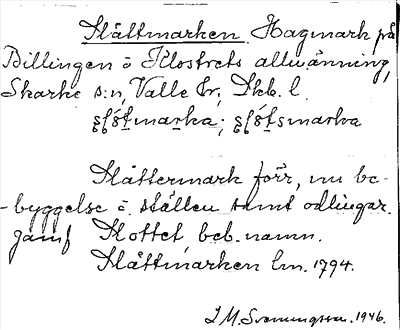 Slättmarken. Hagmark på
Billingen å Klostrets allmänning,
Skarke s:n, Valle hr, Skb. l.
Slåttermark förr, nu be-
-byggelse å ställen samt odlingar.
Jämf Slottet, beb. namn.
Slåttmarken lm. 1794.
J M Svenningsson. 1946.